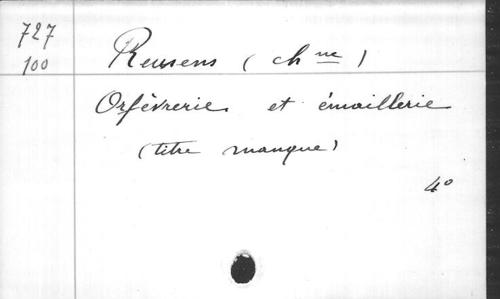 727
100
Reusens (chne)
Orfèvrerie et émaillerie
(titre manque)
4°